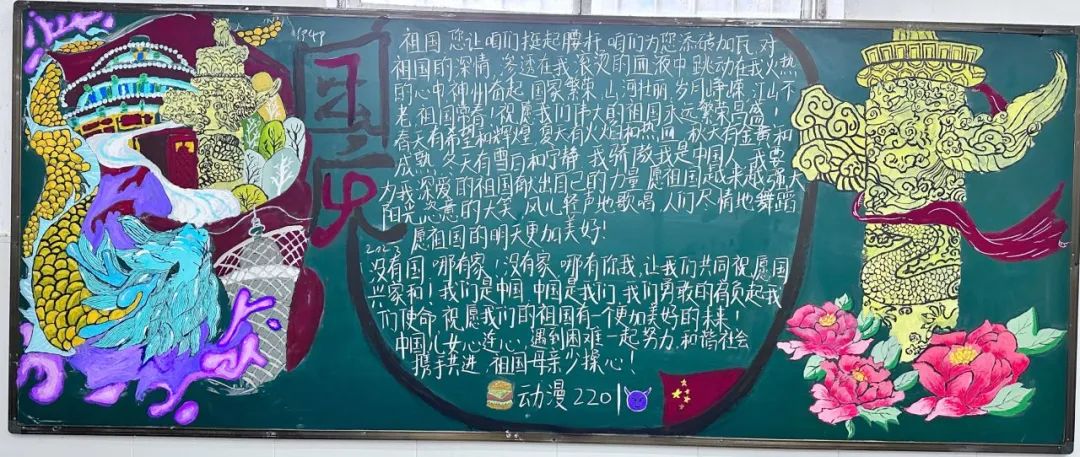 1949
国庆
74
祖国,您让咱们挺起腰杆,咱们为您添砖加瓦,对
祖国的深情,渗透在我滚烫的血液中,跳动在我火热
的心中,神州奋起,国家繁荣,山河壮丽,岁月峥嵘,江山不
老,祖国常春!祝愿我们伟大的祖国永远繁荣昌盛!
春天有希望和辉煌,夏天有火焰和热血,秋天有金黄和
成熟,冬天有雪白和宁静,我骄傲我是中国人,我要
为我深爱的祖国献出自己的力量,愿祖国越来越强大
阳光恣意的大笑,风儿轻声地歌唱,人们尽情地舞蹈
愿祖国的明天更加美好!
2023
没有国,哪有家!没有家,哪有你我,让我们共同祝愿国
兴家和!我们是中国,中国是我们,我们勇敢的肩负起我
们使命,祝愿我们的祖国有一个更加美好的未来!
中国儿女心连心,遇到困难一起努力,和谐社会
携手共进,祖国母亲少操心!
动漫2201